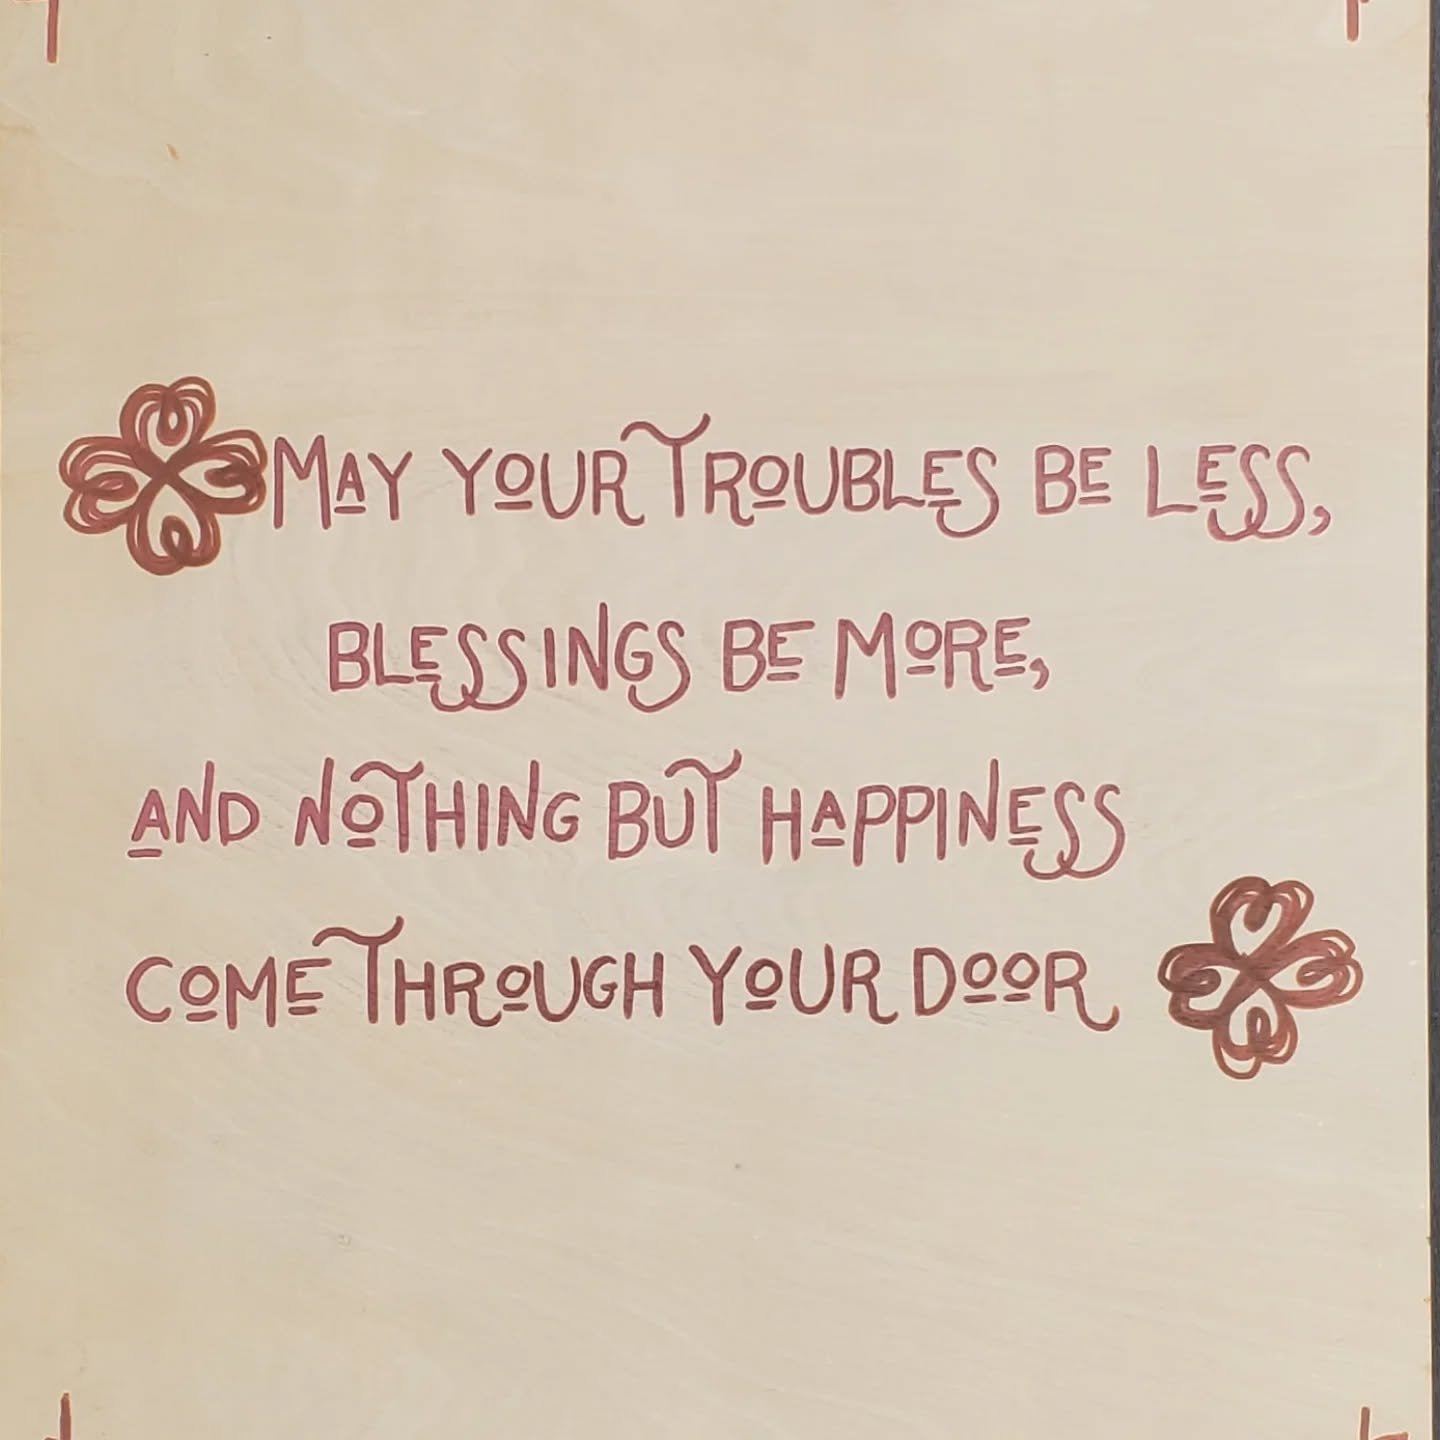 MAY YOUR TROUBLES BE LESS,
BLESSINGS BE MORE,
AND NOTHING BUT HAPPINESS
COME THROUGH YOUR DOOR